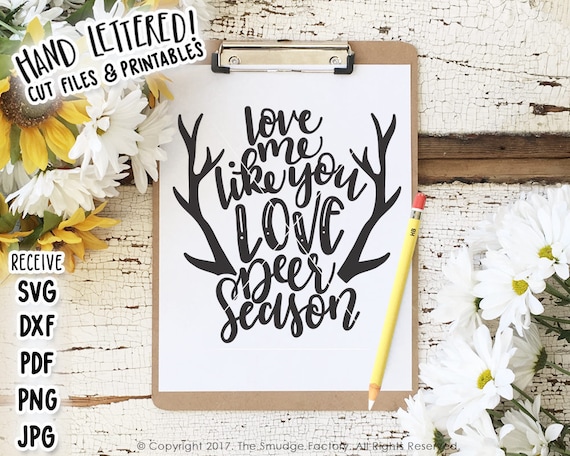 HAND LETTERED!
CUT FILES & PRINTABLES
love
me
like you
LOVE
Deer
Season
HB
RECEIVE
SVG
DXF
PDF
PNG
JPG
© Copyright 2017. The.Smudge.Factory. All Rights Reserved.